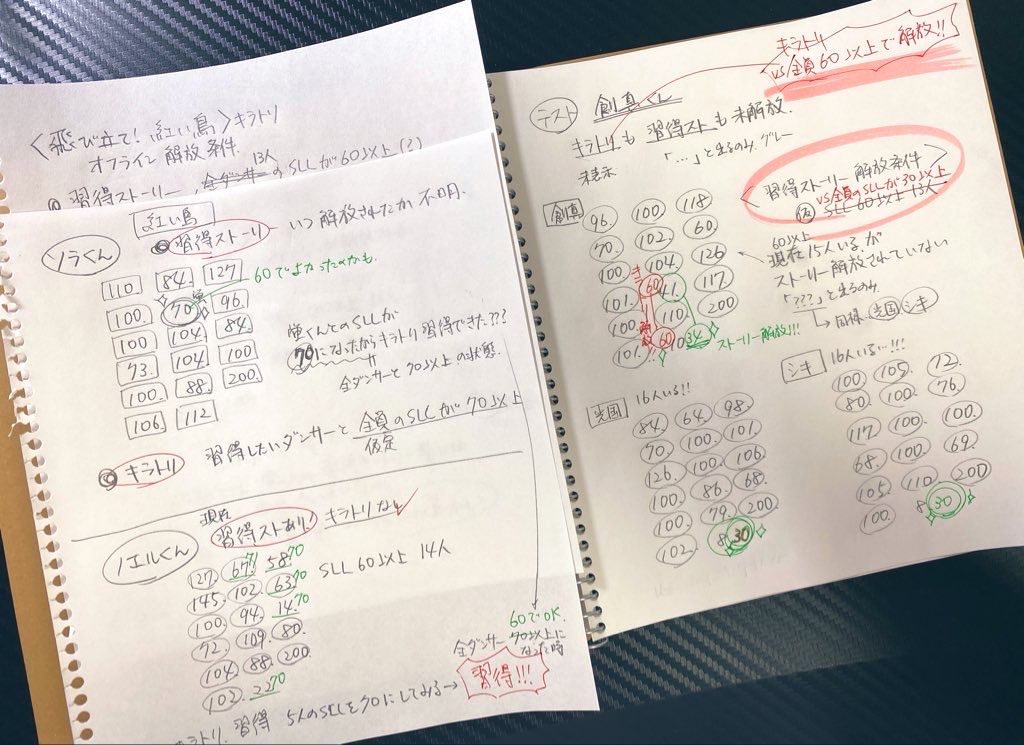 <飛び立て! 紅い鳥> キラトリ
オフライン 解放条件
習得ストーリー 13人 全ダンサーのSLLが60以上(?)
紅い鳥
ソラくん
◎習得ストーリー いつ解放されたか不明.
60でよかったのかも.
110. 84. 127
100. 70 96
100 104 84
93. 104. 100
100. 88. 200.
106. 112
慧くんとのSLLが
70になったからキラトリ習得できた???
全ダンサーと70以上の状態.
◎キラトリ 習得したいダンサーと 全員のSLLが70以上
仮定
現在
ノエルくん
習得ストあり! キラトリなし
SLL 60以上 14人
127. 67 71 58 70
145. 102. 63 70
100. 94. 14 70
72. 109. 80.
104. 88. 200.
102. 22 70
60でOK.
全ダンサー 70以上に
なった時
キラトリ 習得 5人のSLLを70にしてみる→ 習得!!!
キラトリ
VS全員60以上で解放!!
テスト 創真くん
キラトリも習得ストも未解放.
未表示 「…」と出るのみ.グレー
習得ストーリー解放条件
VS全員のSLLが30以上
(仮) SLL60以上 13人
創真
96. 100 118
70. 102. 60.
100. 104 126
101. 60 41 117.
100. 110 200
101. 60 34 ストーリー解放!!!
キラトリ解放!!
60以上
現在15人いるが
ストーリー解放されていない
「???」と出るのみ
↳同様 光国 シキ
光国 16人いる!!
84. 64. 98.
70. 100. 101.
126. 100 106
100. 86. 68.
100. 79. 200.
102. 8 30
シキ 16人いる…!!!
100. 105. 72.
80. 100. 76.
117. 100. 100.
68. 100. 69.
105. 110 200
100. 8 30